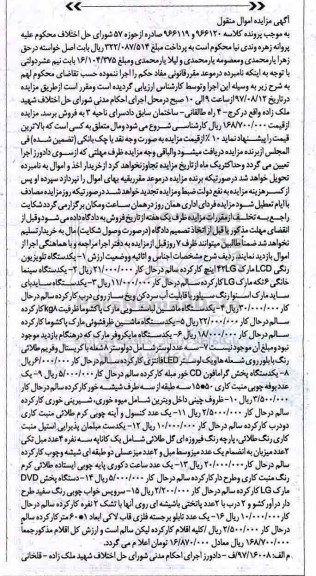 آگهی مزایده اموال منقول
به موجب پرونده کلاسه ۹۶۶۱۲۰ و ۹۶۶۱۱۹ صادره ازحوزه ۵۷ شورای حل اختلاف محکوم علیه
پروانه زهره وندی نیا محکوم است به پرداخت مبلغ ۳۲۲/۰۸۷/۵۱۴ ریال بابت اصل خواسته درحق
زهرا یارمحمدی ومعصومه یارمحمدی و لیلا یارمحمدی ومبلغ ۱۶/۱۰۴/۳۷۵ بابت نیم عشردولتی
با توجه به اینکه نامبرده درموعد مقررقانونی مفاد حکم را اجرا ننموده حسب تقاضای محکوم لهم
به شرح زیر به وسیله این اجرا وتوسط کارشناس ارزیابی گردیده است ومقرر است ازطریق مزایده
درتاریخ ۹۷/۰۸/۱۲ ازساعت ۹الی ۱۰ صبح درمحل اجرای احکام مدنی شورای حل اختلاف شهید
ملک زاده واقع درکرج- ۴ راه طالقانی- ساختمان سابق دادسرای ناحیه ۳ به فروش برسد. مزایده
ازقیمت ۱۶۸/۷۰۰/۰۰۰ ریال کارشناسی شروع می شود ومال متعلق به کسی است که بالاترین
قیمت راپیشنهاد نماید ۱۰٪ ازقیمت مزایده به صورت وجه نقد یا چک بانکی (تضمین شده) فی
المجلس ازبرنده مزایده دریافت میشود والباقی وجه مزایده ظرف مهلتی که ازسوی دادورز اجرا
تعیین می گردد وحداکثریک ماه ازتاریخ مزایده تجاوزنخواهد کرد ازخریدار اخذ و اموال به نامبرده
تحویل خواهد شد درصورتیکه برنده مزایده درموعد مقرربقیه بهای اموال را نپردازد سپرده او پس
از کسر هزینه مزایده به نفع دولت ضبط ومزایده تجدید خواهد شد درصورتیکه روز مزایده مصادف
با ایام تعطیل شود مزایده فردای اداری همان روز در همان ساعت ومکان برگزار می گردد شکایت
راجع به تخلف از مقررات مزایده ظرف یک هفته از تاریخ فروش به دادگاه داده می شود وقبل از
انقضای مهلت مذکور یا قبل از اتخاذ تصمیم دادگاه (درصورت وصول شکایت) مال به خریدار تسلیم
نخواهد شد ضمنا طالبین میتوانند ظرف ۷ روز قبل ازمزایده به دفتر اجرا مراجعه و با هماهنگی اجرا از
اموال بازدید نمایند، ردیف شرح مشخصات اجناس و اثاثیه ووضعیت ارزش ۱- یکدستگاه تلویزیون
رنگی LCD مارک ۴۲LG اینچ کارکرده سالم درحال کار ۲۱/۰۰۰/۰۰۰ ریال ۲- یکدستگاه سینما
خانگی ۶تکه مارک LG کارکرده سالم درحال کار ۱۱/۰۰۰/۰۰۰ ریال ۳- یکدستگاه سایدبای
ساید مارک اسنوا رنگ سیلور با قابلیت آب سردکن ویخ ساز روی درب کارکرده سالم درحال
کار ۳۰/۰۰۰/۰۰۰ریال ۴- یکدستگاه ماشین لباسشویی مارک پاکشوما ظرفیت ۸kg کارکرده
سالم درحال کار ۲۲/۰۰۰/۰۰۰ ریال ۵- یکدستگاه ماشین ظرفشوئی مارک پاکشوما کارکرده
سالم درحال کار ۱۸/۰۰۰/۰۰۰ ریال ۶- یکدستگاه مایکروفر مارک که درهنگام بازدید موجود
نبود ومبلغ آن موجود نیست ۷- سه عدد لوستر شامل دولوستر ۸شعله با کریستال وفریم طلائی
رنگ با پلور روی شعله ها ویک لوستر LEDفانتزی کارکرده سالم درحال کار ۶/۰۰۰/۰۰۰ ریال
۸- یکدستگاه پخش گرامافون CD خور مبله کارکرده سالم درحال کار ۵/۰۰۰/۰۰۰ ریال ۹- یک
عدد بوفه چوبی منبت کاری ۱۵۰۰۵۰ سه طبقه از سه طرف شیشه خور کارکرده سالم درحال کار
۳/۵۰۰/۰۰۰ ریال ۱۰- ظروف چینی داخل ویترین شامل میوه خوری، شیرینی خوری کارکرده
سالم درحال کار ۲/۵۰۰/۰۰۰ ریال ۱۱- یک عدد کنسول و آینه چوبی کرم طلائی منبت کاری
دودرب کارکرده سالم درحال کار ۱۰/۰۰۰/۰۰۰ ریال ۱۲- یکدست مبلمان پذیرایی استیل منبت
کاری رنگ طلائی، پارچه رنگ فیروزه ای گل طلائی شامل یک کاناپه سه نفره ۴عدد مبل تکی
۲عدد میزبان به انضمام یک عدد میز وسط مبل و ۲عدد میز عسلی دو طبقه ای شیشه وچوب کارکرده
سالم درحال کار ۲۰/۰۰۰/۰۰۰ ریال ۱۳- یک عدد ساعت دکوری پایه چوبی ایستاده طلائی کرم
رنگ منبت کاری وطرح دار کارکرده سالم درحال کار ۵/۰۰۰/۰۰۰ ریال ۱۴- دستگاه پخش DVD
مارک LG کارکرده سالم درحال کار ۲/۲۰۰/۰۰۰ ریال ۱۵- سرویس خواب چوبی رنگ سفید طرح
دار دراور کشو و ۲ درب با ۲عدد پاتختی باشیشه ای روی آنها با تشک ۲ نفره کارکرده سالم درحال
کار ۱۰/۰۰۰/۰۰۰ ریال ۱۶- یک عدد تابلو برجسته فلزی قاب لاکی ابعاد ۱*۶۰ متر کارکرده سالم
درحال کار ۲/۵۰۰/۰۰۰ ریال /کلیه اقلام کارکرده لیکن سالم است و ارزش کل اقلام مذکورجمعا
۱۶۸/۷۰۰/۰۰۰ ریال معادل ۱۶/۸۷۰/۰۰۰ تومان اعلام می گردد.
م الف: ۹۷/۱۶۰۰۸/ف - دادورز اجرای احکام مدنی شورای حل اختلاف شهید ملک زاده - قلخانی